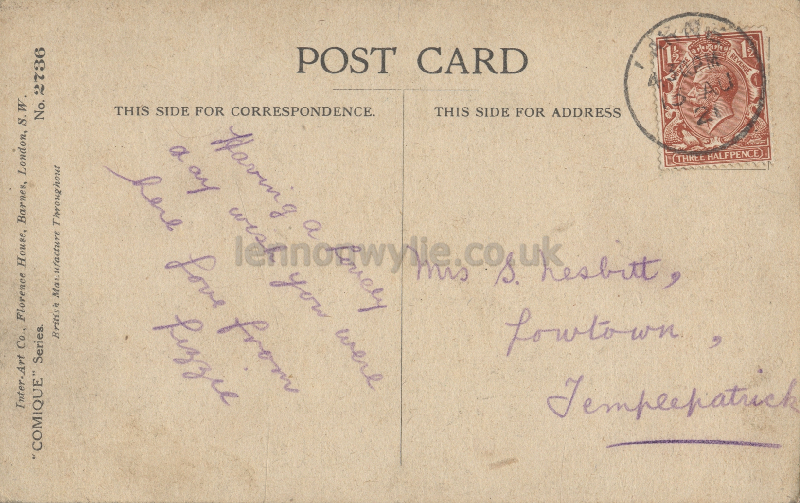 POST CARD
THIS SIDE FOR CORRESPONDENCE.
THIS SIDE FOR ADDRESS
Having a lovely
day wish you were
here love from
Lizzie
Mrs S. Nesbitt,
Lowtown,
Templepatrick
Inter-Art Co., Florence House, Barnes, London, S.W.
"COMIQUE" Series.
No. 2736
British Manufacture Throughout
1½
THREE HALFPENCE
AU
21
lennonwylie.co.uk